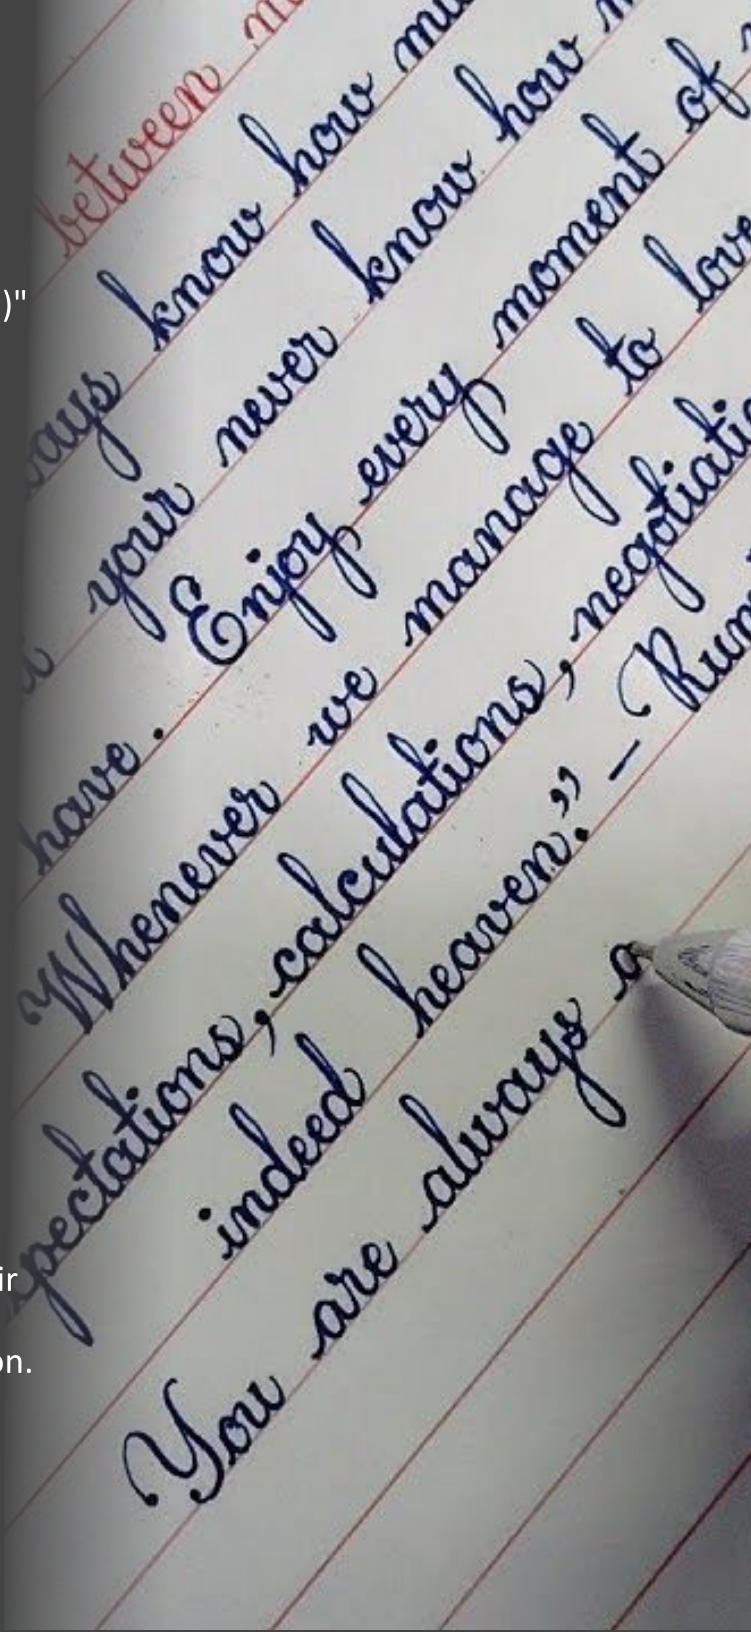 )"
between m
ways know how mu
your never know how
have. Enjoy every moment of
Whenever we manage to love
pectations, calculations, negotiatio
indeed heaven.” – Rum
You are always a
ir
on.